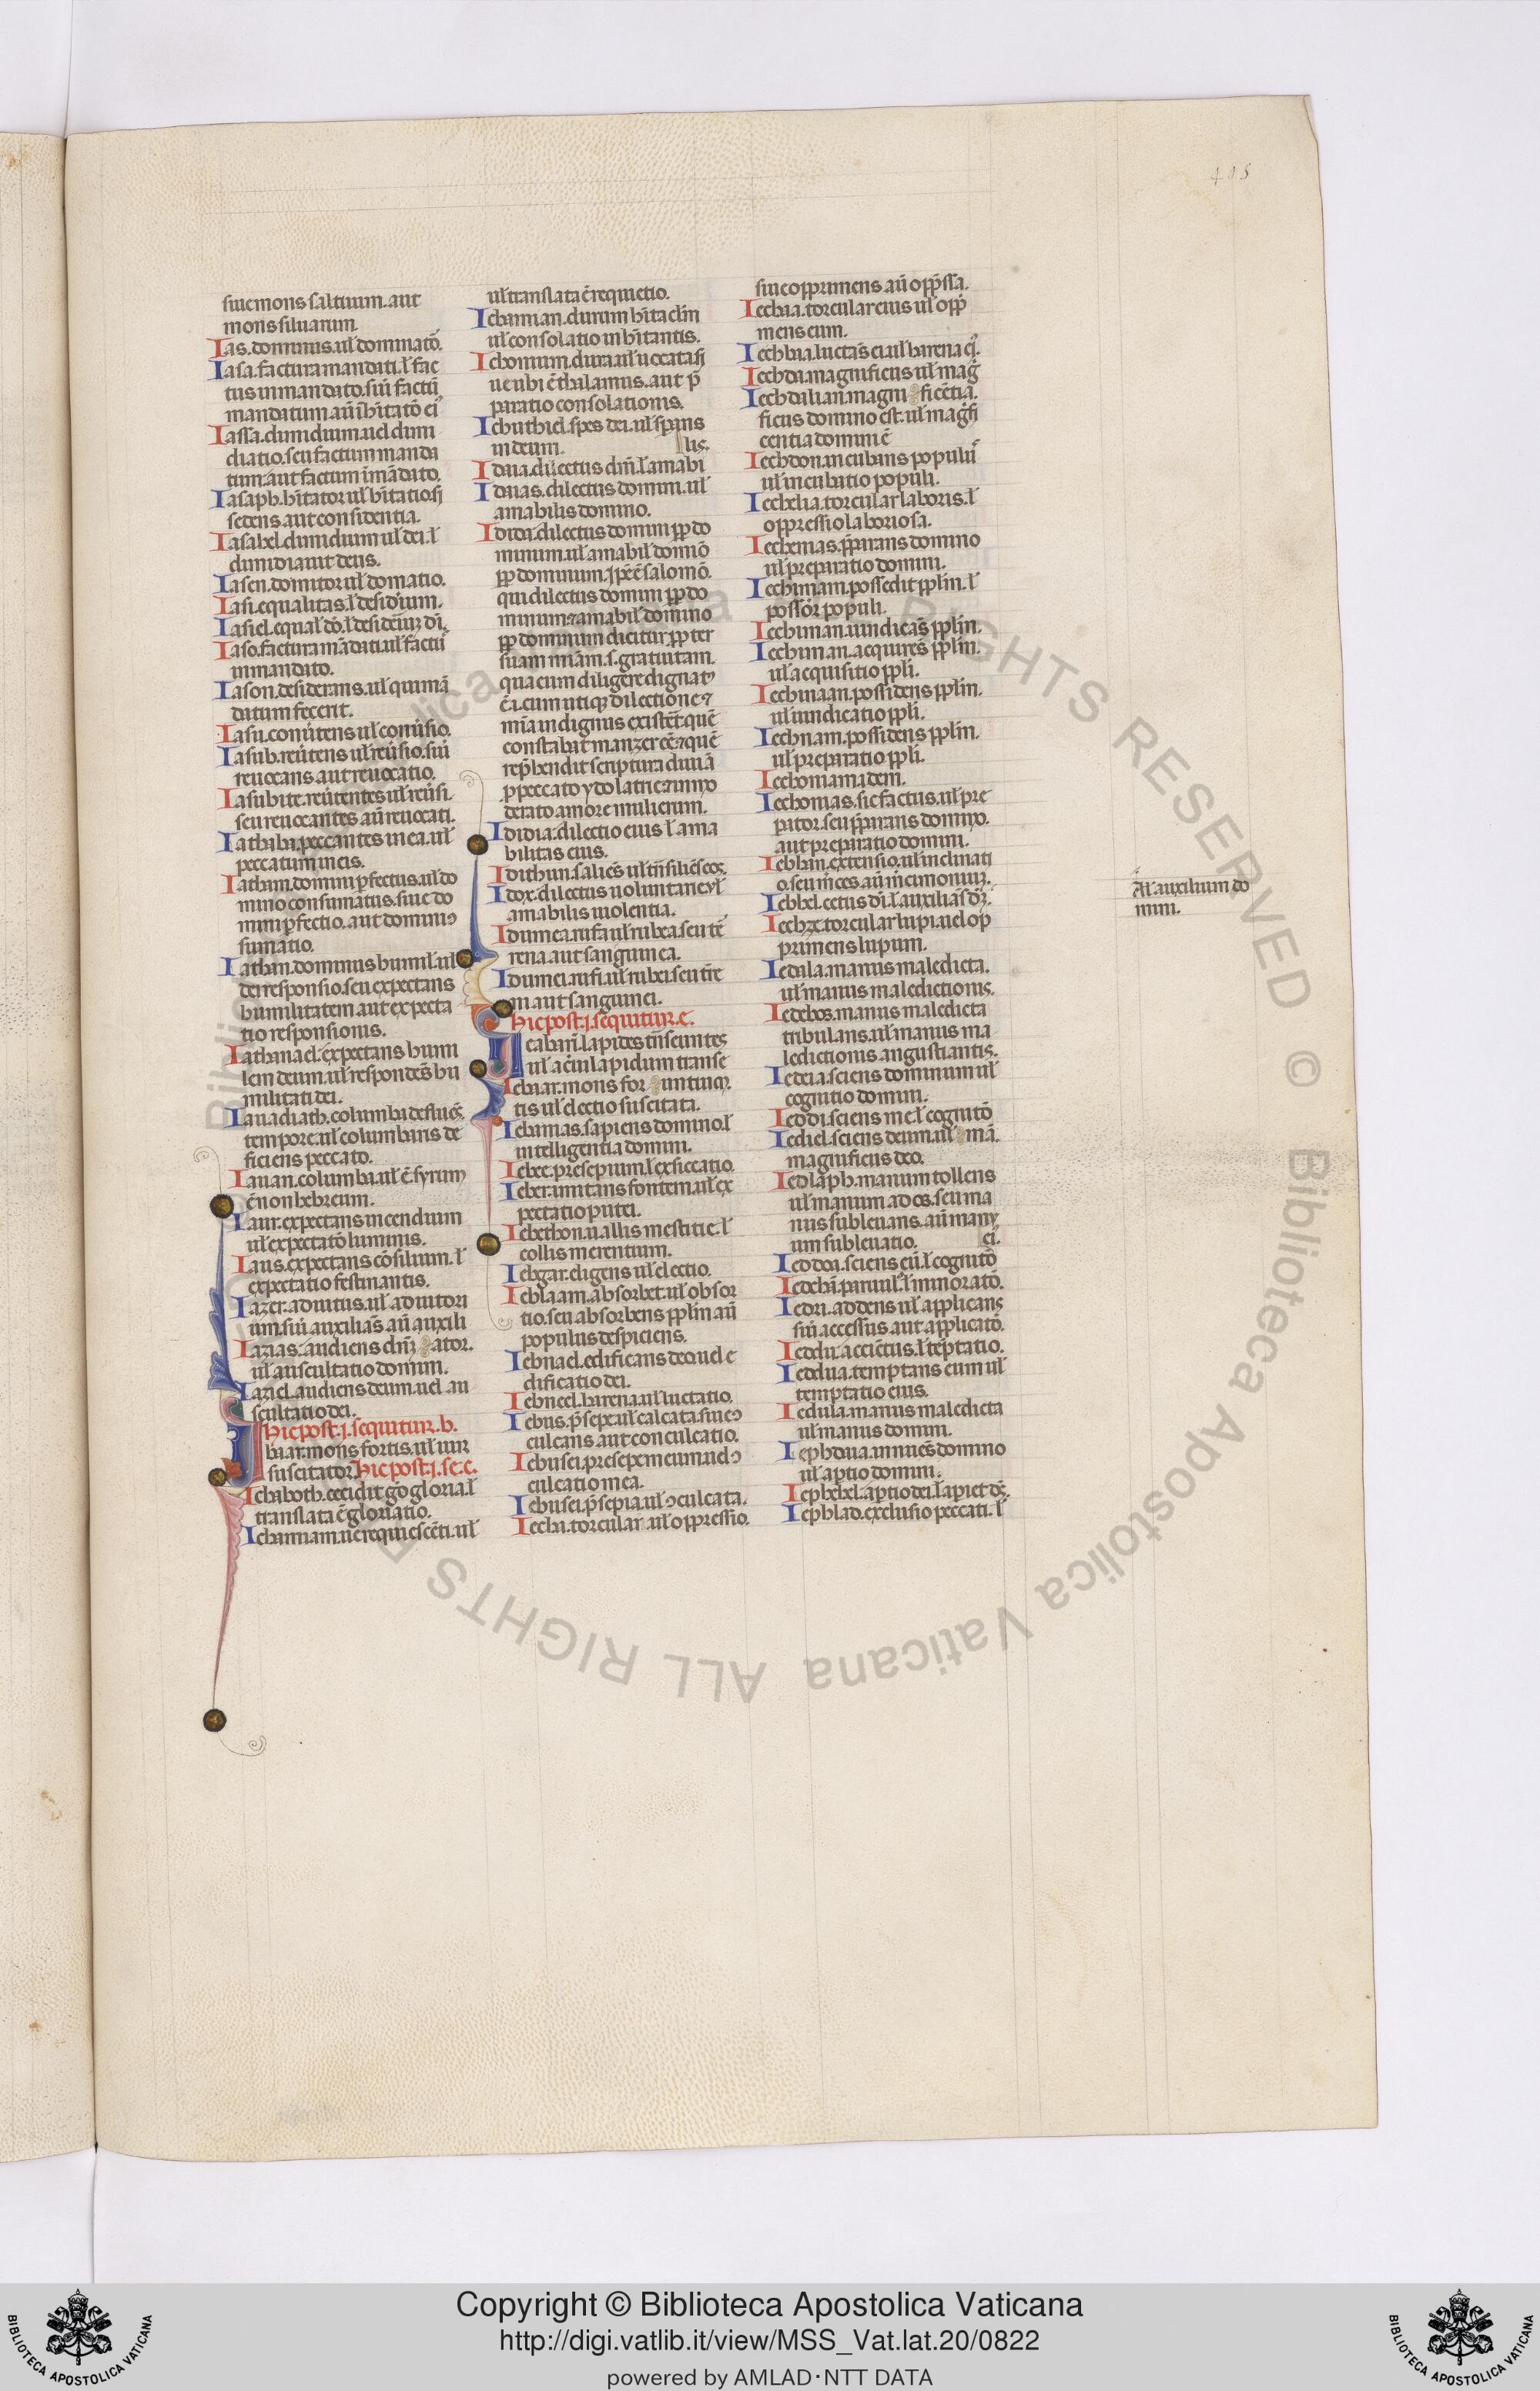 405
siue mons saltuum. aut
mons siluarum
Ias. dominus. ul̄ dominatō.
Iasa. factura mandati. l̄ fac
tus in mandato. siū factū
mandatum aū īhītatō ei⁹
Iassa. dimidium. uel dimi
diatio. seu factum manda
tum. aut factum ī mādato.
Iasaph. hītator ul̄ hītatio. s̄
sedens aut considentia.
Iasabel. dimidium ul̄ dei. l̄
dimidia aut deus.
Iasen. domitor ul̄ domatio.
Iasi. equalitas. l̄ desidium.
Iasiel. equal̄ dō. l̄ desideriuꝫ dī.
Iaso. factura mādati. ul̄ factū
in mandato.
Iason. desiderans. ul̄ qui mā
datum fecerit.
Iasu. conūtens ul̄ conūsio.
Iasub. reūtens ul̄ reūsio. siū
reuocans. aut reuocatio.
Iasubite. reūtentes ul̄ reūsi.
seu reuocantes aū reuocati.
Iathaba. peccantes in ea. ul̄
peccatum in eis.
Iatham. domini ꝑfectus. ul̄ do
mino consumatus. siue do
mini ꝑfectio. aut domini ꝯ
sumatio.
Iathan. dominus humil̄. ul̄
dei responsio. seu expectans
humilitatem aut expecta
tio responsionis.
Iathanael. expectans humi
lem deum. ul̄ respondēs hu
militati dei.
Iauadiath. columba defluēs.
tempore. ul̄ columbans de
ficiens peccato.
Iauan. columba. ul̄ ē syrum
ē non hebreum.
Iaur. expectans incendium
ul̄ expectatō luminis.
Iaus. expectans cōsilium. l̄
expectatio festinantis.
Iazer. adiutus. ul̄ adiutori
um. siū auxiliās aū auxili
Iazias. audiens dn̄ꝫ ator.
ul̄ auscultatio domini.
Iaziel. audiens deum. uel au
scultatio dei.
hic post .i. sequitur .b.
Ibaar. mons fortis. ul̄ uir
suscitator. hic post .i. se .c.
Ichaboth. cecidit gō gloria. l̄
translata ē gloriatio.
Ichannam. ue requiescēti. ul̄
ul̄ translata ē requietio.
Ichannan. durum hīta clm̄
ul̄ consolatio inhītantis.
Ichonium. dura. ul̄ uocata. s̄
ue ubi ē thalamus. aut p̄
paratio consolationis.
Ichuthiel. spes dei. ul̄ sꝑans
in deum. lis.
Idaia. dilectus dn̄i. l̄ amabi
Idaias. dilectus domini. ul̄
amabilis domino.
Ididia. dilectus domini ꝓpp̄ do
minum. ul̄ amabil̄ domiō
ꝓpp̄ dominum. ip̄e ē salomō.
qui dilectus domini ꝓpp̄ do
minum ⁊ amabil̄ domino
ꝓpp̄ dominum dicitur. ꝓpp̄ter
suam mīam .s. gratuitam.
qua eum diligere dignat⁹
ē. i. cum utiqꝫ dilectione ⁊
mīa indignus existet. quē
constabat manzer eē̄. ⁊ quē
rep̄hendit scriptura diuīa
ꝓ peccato ydolatrie ⁊ immo
derato amore mulierum.
Ididia. dilectio eius l̄ ama
bilitas eius.
Idithun. saliēs ul̄ tn̄siliēs eos.
Idox. dilectus uoluntarie. ul̄
amabilis uiolentia.
Idumea. rufa. ul̄ rubea. seu tē
rena. aut sanguinea.
Idumei. rufi. ul̄ rubei. seu tēre
ni aut sanguinei.
hic post .i. sequitur .e.
Ieabarī. lapides tn̄seuntes
ul̄ aceruī lapidum transe
Iebaar. mons for untiuꝫ.
tis ul̄ electio suscitata.
Iebamas. sapiens domino. l̄
intelligentia domini.
Iebec. presepium. l̄ exsiccatio.
Ieber. irritans fontem. ul̄ ex
pectatio putei.
Iebethon. uallis mestitie. l̄
collis merentium.
Iebgar. eligens ul̄ electio.
Ieblaam. absorbet. ul̄ obsor
tio. seu absorbens pplm̄ aū
populus despiciens.
Iebnael. edificans deo. uel e
dificatio dei.
Iebneel. harena. ul̄ luctatio.
Iebus. p̄sepe ul̄ calcata. siue ꝯ
culcans. aut conculcatio.
Iebusei. presepe meum. uel ꝯ
culcatio mea.
Iebusei. p̄sepia. ul̄ ꝯculcata.
Iecha. torcular. ul̄ oppressio.
siue opprimens aū opp̄ssa.
Iechaia. torcular eius ul̄ opp̄
mens eum.
Iechbaa. luctās ei. ul̄ harena ei⁹.
Iechda. magnificus ul̄ maḡ
Iechdalian. magni ficētia.
ficus domino est. ul̄ maḡfi
centia domini ē
Iechdon. incubans populū
ul̄ incubatio populi.
Iechelia. torcular laboris. l̄
oppressio laboriosa.
Iechemas. p̄parans domino
ul̄ preparatio domini.
Iechmam. possedit pplm̄. l̄
possōr populi.
Iechman. uindicās pplm̄.
Iechman. acquirēs pplm̄.
ul̄ acquisitio ppl̄i.
Iechmaan. possidens pplm̄.
ul̄ uindicatio ppl̄i.
Iechnam. possidens pplm̄.
ul̄ preparatio ppl̄i.
Iechoniam. idem.
Iechonias. sic factus. ul̄ pre
parator. seu p̄parans domino.
aut preparatio domini.
Iehban. extensio. ul̄ inclinati
o. seu m̄ces. aū m̄cimoniuꝫ.
Iehbel. cetus dī. l̄ auxiliās dꝫ.
Iechze. torcular lupi. uel op
primens lupum.
Iedala. manus maledicta.
ul̄ manus maledictionis.
Iedebos. manus maledicta
tribulans. ul̄ manus ma
ledictionis angustiantis.
Iedeia. sciens dominum ul̄
cognitio domini.
Iedi. sciens me. l̄ cognitō
Iediel. sciens deum. ul̄ mā.
magnificus deo.
Iedlaph. manum tollens
ul̄ manum ad os. seu ma
nus subleuans. aū manu
um subleuatio. ei.
Iedoa. sciens eū. l̄ cognitō
Iedoch. paruul̄. l̄ minoratō.
Iedri. addens ul̄ applicans
siū accessus aut applicatō.
Iedu. accīctus. l̄ tēptatio.
Iedua. temptans eum ul̄
temptatio eius.
Iedula. manus maledicta
ul̄ manus domini.
Iephdaia. innuēs domino
ul̄ aꝑtio domini.
Iephehel. aꝑtio dei. l̄ apiet ds̄.
Iephlad. exclusio peccati. l̄
Al̄ auxilium do
mini.
Copyright © Biblioteca Apostolica Vaticana
http://digi.vatlib.it/view/MSS_Vat.lat.20/0822
powered by AMLAD·NTT DATA
BIBLIOTECA APOSTOLICA VATICANA
BIBLIOTECA APOSTOLICA VATICANA
Biblioteca Apostolica Vaticana ALL RIGHTS RESERVED ©